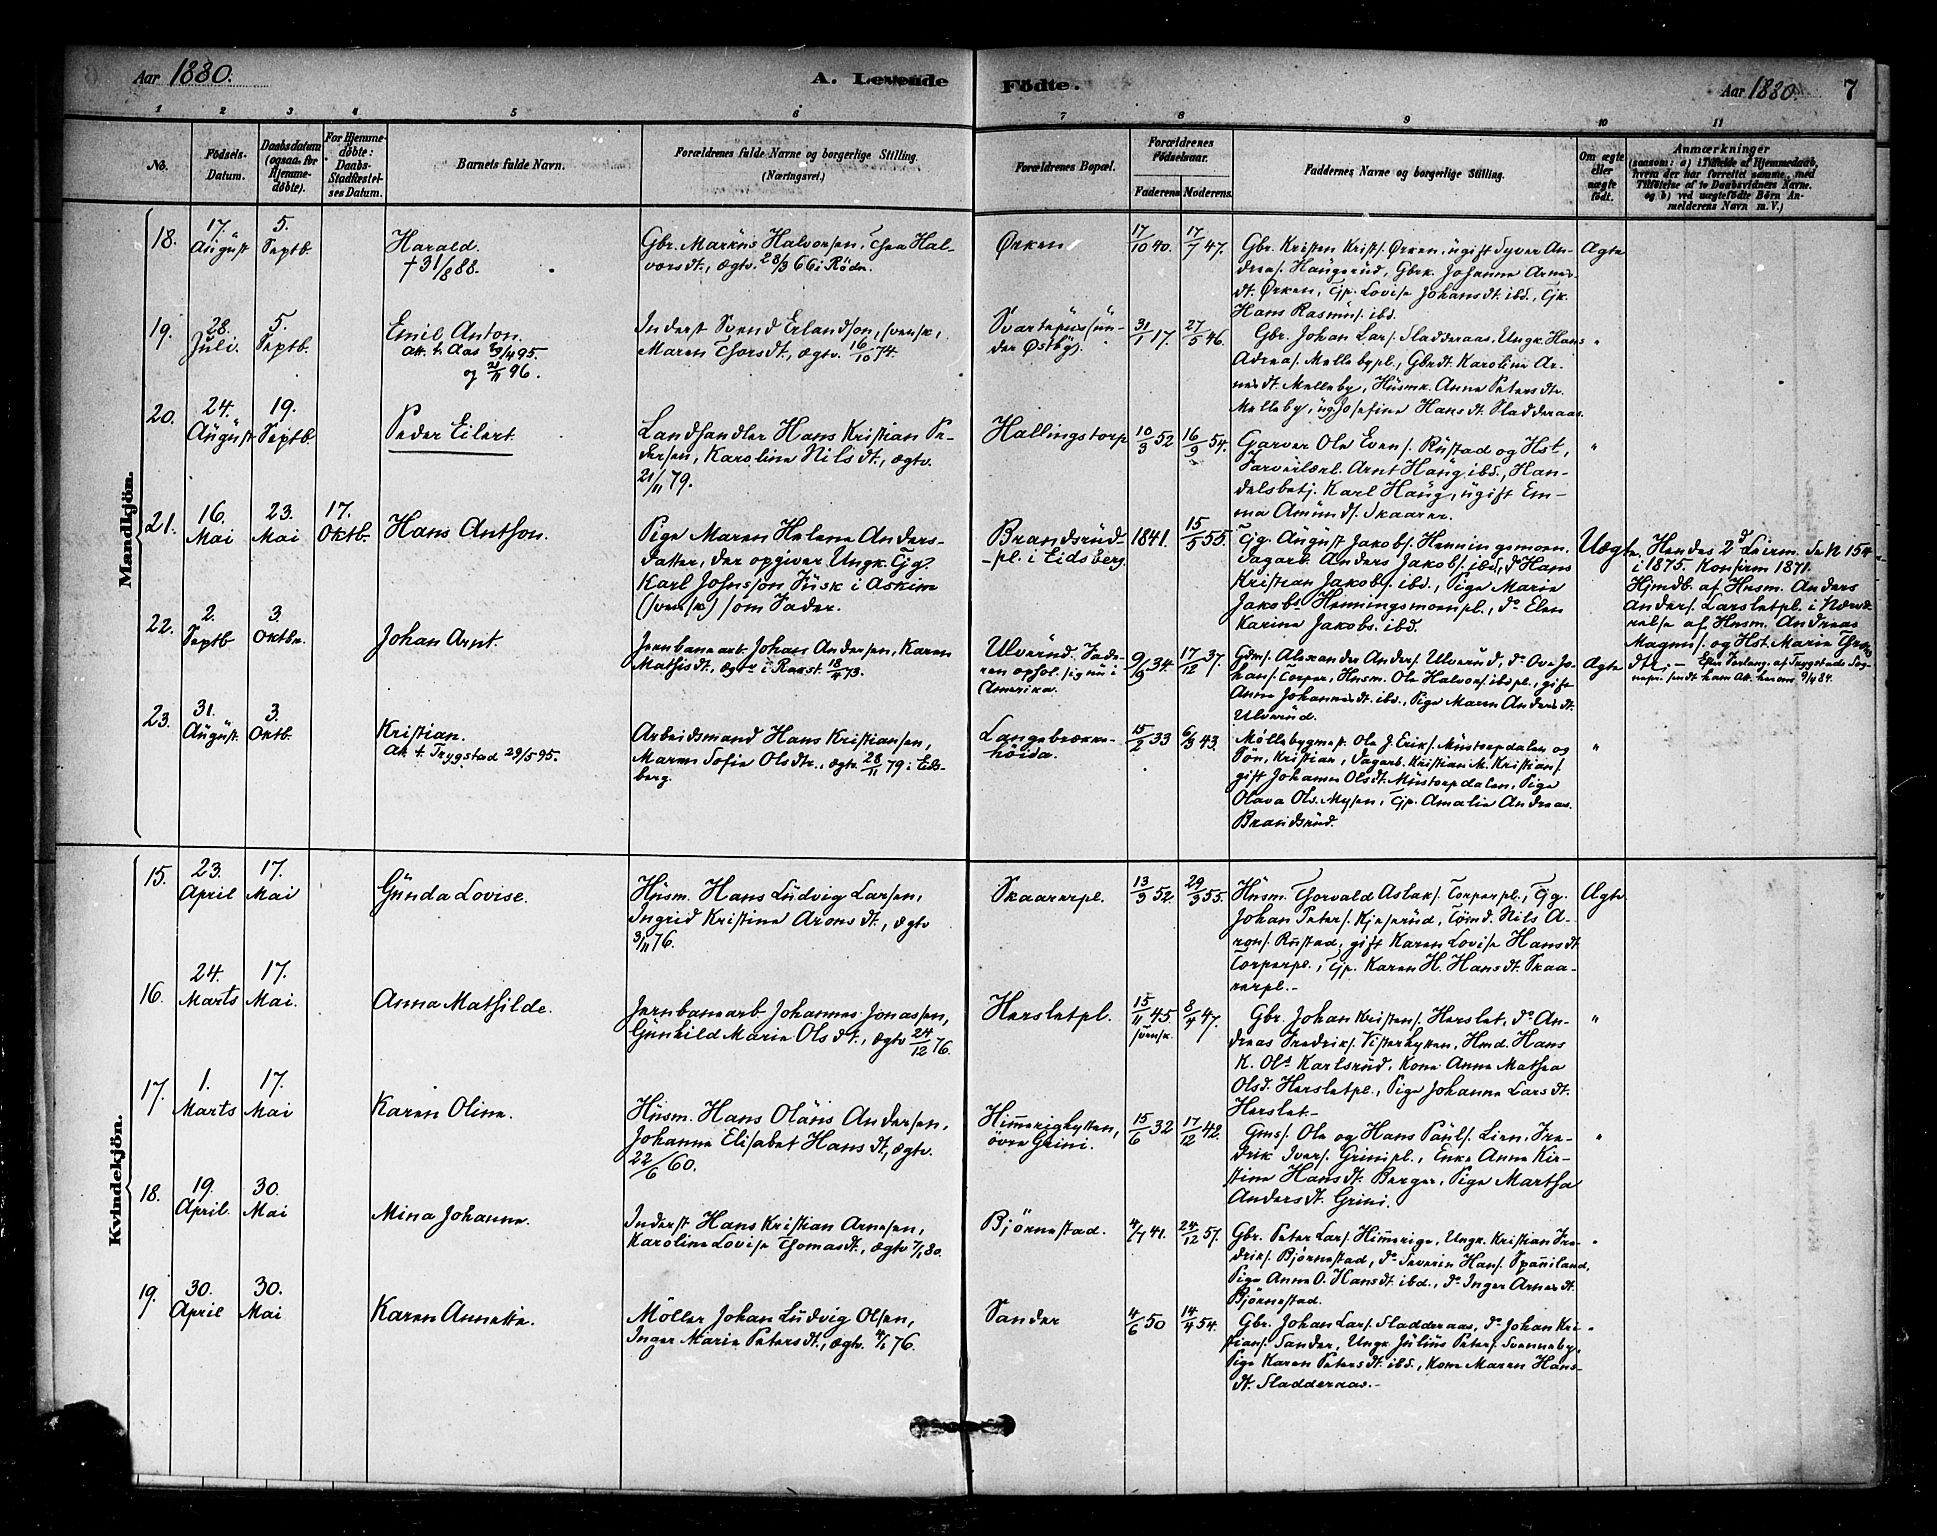 Aar 1880.
A. Levende
Födte.
Aar 1880.
7
1 2 3 4 5 6 7 8 9 10 11
No.
Födsels-
Datum.
Daabsdatum
(ogsaa for
Hjemme-
döbte).
For Hjemme-
döbte:
Daabs-
Stadfæstel-
ses Datum.
Barnets fulde Navn.
Forældrenes fulde Navne og borgerlige Stilling.
(Næringsvei.)
Forældrenes Bopæl.
Forældrenes
Födselsaar.
Faderens
Moderens.
Faddernes Navne og borgerlige Stilling.
Om ægte
eller
uægte
födt.
Anmærkninger
(saasom: a) i Tilfælde af Hjemmedaab,
hvem der har forrettet samme, med
Tilföielse af to Daabsvidners Navne.
og b) ved uægtefödte Börn An-
melderens Navn m. V.)
Mandkjön.
18.
17.
August
5.
Septb.
Harald.
† 31/8 88.
Gbr. Markus Halvorsen, Thea Hal-
vorsdt., ægtv. 28/3 66 i Rödn.
Ørken
17/10 40.
17/7 47.
Gbr. Kristen Krist/. Ørken, ugift Syver An-
drea/. Haugerud, Gbrk. Johanne Arnes
dt. Ørken, Tjp. Lovise Johansdt. ibd., Tjk.
Hans Rasmus/. ibd.
Ægte
19.
28.
Juli.
5.
Septb.
Emil Anton.
Att. t. Aas 29/4 95.
og 21/11 96.
Inderst Svend Erlandson, svensk,
Maren Thorsdt., ægtv. 16/10 74.
Svartepus/un-
der Østby.
31/1 17.
27/5 46.
Gbr. Johan Lars/. Sladderaas, Ungk. Hans
Adrea/. Mellebypl., Gbrdt. Karoline Ar-
nesdt. Melleby, Husmk. Anne Petersdtr.
Melleby, ug. Josefine Hansdt. Sladderaas.
"
20.
24.
August
19.
Septb
Peder Eilert.
Landhandler Hans Kristian Pe-
dersen, Karoline Nilsdt., ægtv.
21/11 79.
Hallingstorp
10/3 52
16/9 54.
Garver Ole Evens/. Rustad og Hst,
Farverlærl. Arnt Haug ibd., Han-
delsbetj. Karl Haug, ugift Em-
ma Amunds/. Skaarer.
"
21.
16.
Mai
23.
Mai
17.
Oktb.
Hans Anthon.
Pige Maren Helene Anders-
datter, der opgiver Ungk. Tjg.
Karl Johnsson Fusk i Askim
(svensk) som Fader.
Brandsrud-
-pl. i Eidsberg
1841.
15/5 55.
Tjg. August Jakobs/. Henningsmoen.
Dagarb. Anders Jakobs/. ibd., d° Hans
Kristian Jakobs/. ibd., Pige Marie
Jakobs. Henningsmoenpl., d° Elen
Karine Jakobs. ibd.
Uægte.
Hendes 2d Leierm. Se N 154
i 1875. Konfirm 1871.
Hjmdb. af Husm. Anders
Anders/. Larsletpl. i Nærvæ-
relse af Husm. Andreas
Magnus/. og Hst. Marie
22.
2.
Septb
3.
Oktbr.
Johan Arnt.
Jernbanearb. Johan Andersen, Karen
Mathisdt., ægtv i Rakst. 18/4 73.
Ulverud. Fade-
ren ophol. sig nu i
Amerika.
9/9 34.
17/12 37.
Gdm/. Alexander Anders/. Ulverud, d° Ove Jo-
hans/. Torper, Husm. Ole Halvors/. ibdspl., gift
Anne Johannesdt. ibd., Pige Maren Andersdt.
Ulverud.
Ægte
Efter Forlang. af Trygstads Sog-
nepr. sendt ham Att. herom 9/4 84.
23.
31.
August.
3.
Oktb.
Kristian.
Att. t. Trygstad 29/5 95.
Arbeidsmand Hans Kristiansen,
Maren Sofie Olsdtr., ægtv 28/11 79 i Eids-
berg.
Langebrække-
höida.
15/2 33
6/3 43.
Møllebygmest. Ole J. Eriks/. Mustorpdalen og
Sön, Kristian, Dagarb. Kristian M. Kristians/.
gift Johanne Olsdt. Mustorpdalen, Pige
Olava Ols. Mysen, Tjp. Amalie Andreas.
Brandsrud.
"
Kvindekjön.
15.
23.
April
17.
Mai
Gunda Lovise.
Husm. Hans Ludvig Larsen,
Ingrid Kristine Aronsdt., ægtv
3/11 76.
Skaarerpl.
13/3 52.
29/3 55.
Husm. Thorvald Aslak/. Torperpl., Tjg.
Johan Peters/. Kjeserud, Tömd. Nils A-
rons/. Rustad, gift Karen Lovise Hansdt.
Torperpl., Tjp. Karen H. Hansdt. Skaa-
rerpl.-
Ægte.
16.
24.
Marts
17.
Mai.
Anna Mathilde.
Jernbanearb. Johannes Jonassen,
Gunhild Marie Olsdt., ægtv 24/12 76.
Hersletpl.
15/11 45
svensk.
8/4 47.
Gbr. Johan Kristens/. Herslet, d° An-
dreas Fredriks/. Visterhytten, Hmd. Hans
K. Ols. Karlsrud, Kone Anne Mathea
Olsd. Hersletpl., Pige Johanne Larsdt.
Herslet.-
"
17.
1.
Marts
17.
Mai
Karen Oline.
Husm. Hans Olaus Andersen,
Johanne Elisabet Hansdt., ægtv.
22/6 60.
Himmerighytten,
övre Grini.
15/6 32
17/12 42.
Gms/. Ole og Hans Pauls/. Lien, Fre-
drik Ivers/. Grinipl., Enke Anne Kir-
stine Hansdt. Berger, Pige Martha
Andersdt. Grini.
"
18.
19.
April.
30.
Mai
Mina Johanne.
Inderst Hans Kristian Arnesen,
Karoline Lovise Thomasdt., ægtv 7/1 80.
Bjørnestad.
4/7 41.
24/12 57.
Gbr. Peter Lars/. Himmerige, Ungk. Kristian Fre-
driks/. Bjørnestad, d° Severin Hans/. Spauiland,
Pige Anne O. Hansdt. ibd., d° Inger Arnesdt.
Bjørnestad.
"
19.
30.
April
30.
Mai
Karen Annette.
Möller Johan Ludvig Olsen,
Inger Marie Petersdt., ægtv. 4/1 76.
Sander
4/6 50
14/4 54.
Gbr. Johan Lars/. Sladderaas, d° Johan Kri-
stians/. Sander, Ungk Julius Peters/. Svenneby,
Pige Karen Petersdt. ibd., Kone Maren Hans-
dt. Sladderaas.-
"